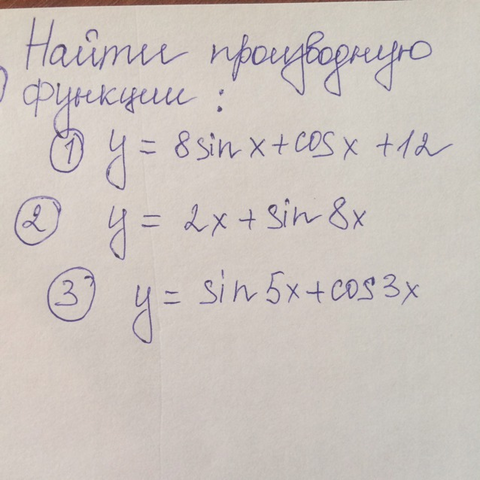 Найти производную
функции:
① y = 8sin x + cos x + 12
② y = 2x + sin 8x
③ y = sin 5x + cos 3x